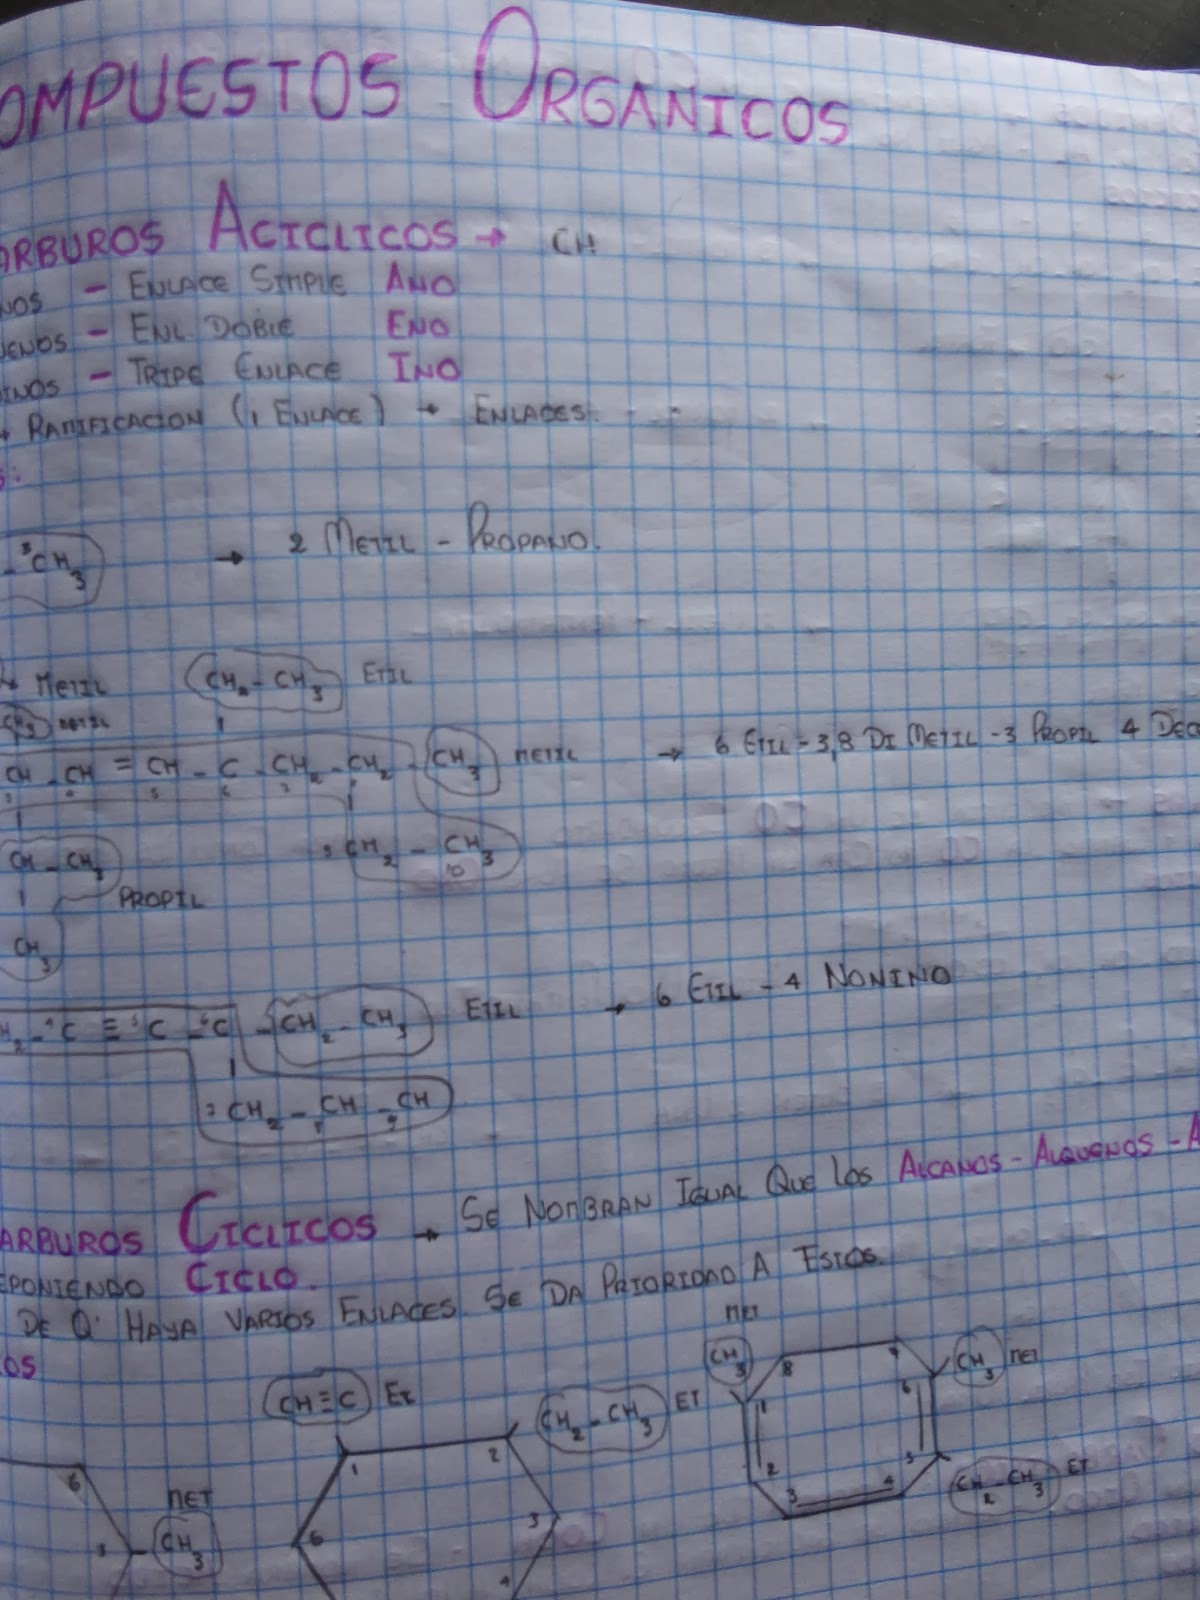 OMPUESTOS ORGANICOS
ARBUROS ACICLICOS → CH
NOS - ENLACE SIMPLE ANO
UENOS - ENL. DOBLE ENO
INOS - TRIPE ENLACE INO
+ RAMIFICACION (1 ENLACE) → ENLACES.
S:
- ³CH₃ → 2 METIL - PROPANO.
METIL CH₂ - CH₃ ETIL
CH₃ METIL
CH - CH = CH - C - CH₂ - CH₂ - CH₃ METIL → 6 ETIL - 3,8 DI METIL - 3 PROPIL 4 DEC
CH - CH₃ 9 CH₂ - CH₃
10
PROPIL
CH₃
H₂ - ⁴C ≡ ⁵C - ⁶C - CH₂ - CH₃ ETIL → 6 ETIL - 4 NONINO
7 CH₂ - CH - CH
8 9
ARBUROS CICLICOS → SE NOMBRAN IGUAL QUE LOS ALCANOS - ALQUENOS - A
EPONIENDO CICLO.
DE Q' HAYA VARIOS ENLACES SE DA PRIORIDAD A ESTOS.
OS
CH≡C ET CH₂ - CH₃ ET
1 2 3 4 6
6 MET CH₃
MET CH₃ CH₃ MET
CH₂ - CH₃ ET
1 2 3 4 5 6 7 8